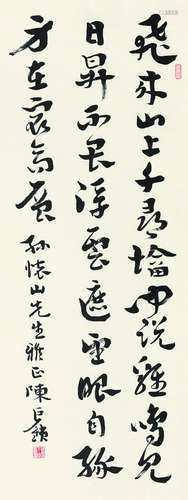 飛來山上千尋塔聞說雞鳴見
日昇不畏浮雲遮望眼自緣
身在最高層 孫懷山先生雅正陳巨鎖